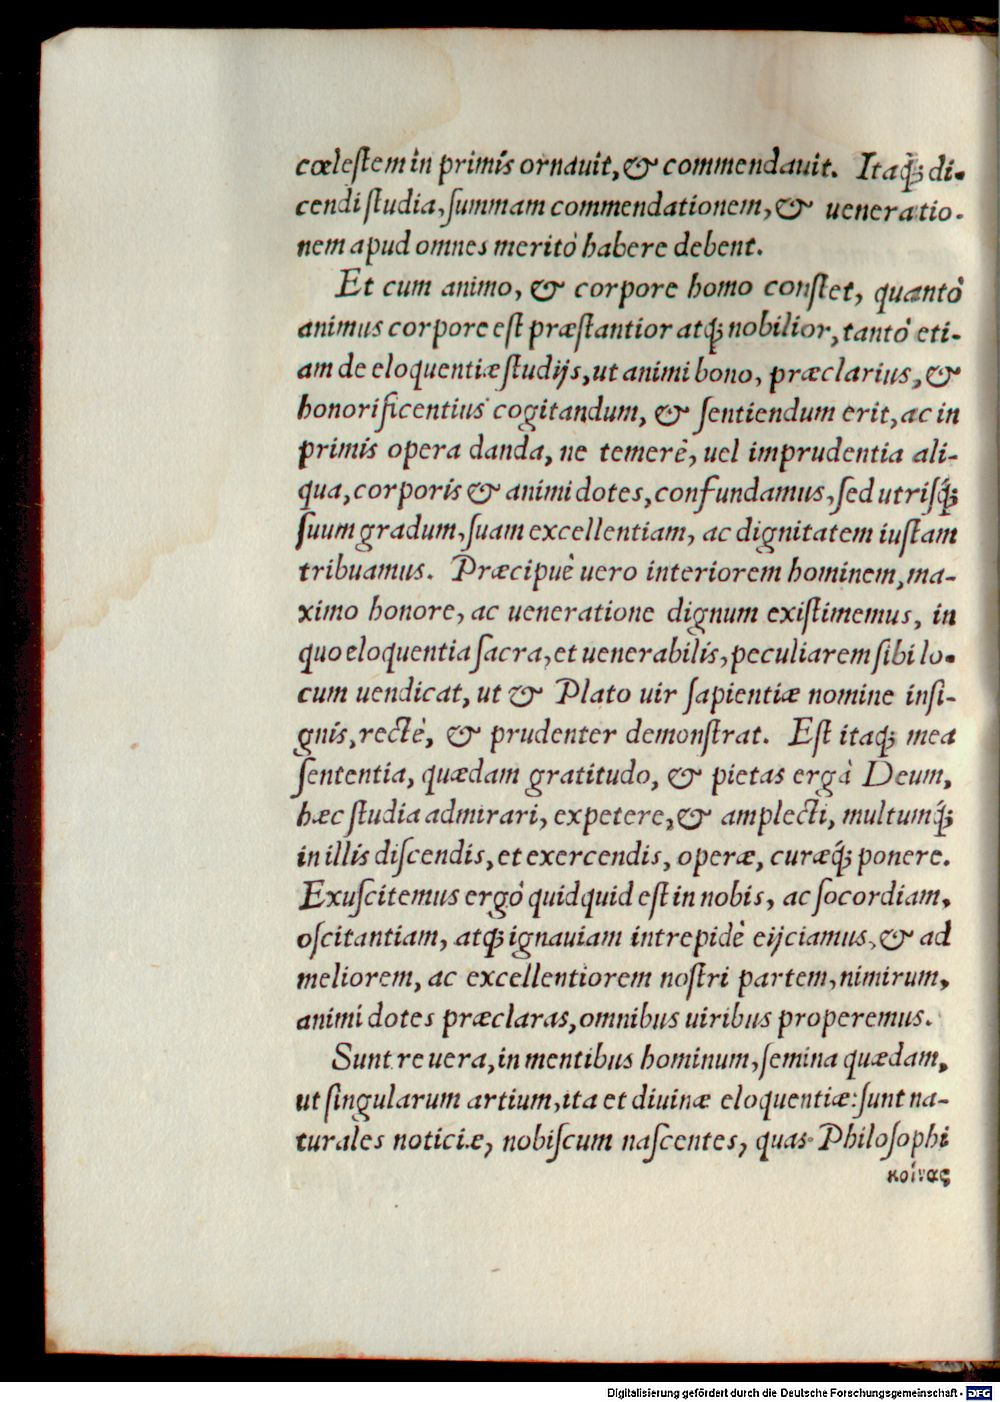 cœleſtem in primis ornauit, & commendauit. Itaq́; di-
cendi ſtudia, ſummam commendationem, & ueneratio-
nem apud omnes meritò habere debent.
Et cum animo, & corpore homo conſtet, quantò
animus corpore eſt præſtantior atq; nobilior, tantò eti-
am de eloquentiæ ſtudijs, ut animi bono, præclarius, &
honorificentius cogitandum, & ſentiendum erit, ac in
primis opera danda, ne temerè, uel imprudentia ali-
qua, corporis & animi dotes, confundamus, ſed utriſq́;
ſuum gradum, ſuam excellentiam, ac dignitatem iuſtam
tribuamus. Præcipuè uero interiorem hominem, ma-
ximo honore, ac ueneratione dignum exiſtimemus, in
quo eloquentia ſacra, et uenerabilis, peculiarem ſibi lo-
cum uendicat, ut & Plato uir ſapientiæ nomine inſi-
gnis, rectè, & prudenter demonſtrat. Eſt itaq; mea
ſententia, quædam gratitudo, & pietas ergà Deum,
hæc ſtudia admirari, expetere, & amplecti, multumq́;
in illis diſcendis, et exercendis, operæ, curæq́; ponere.
Exuſcitemus ergò quidquid eſt in nobis, ac ſocordiam,
oſcitantiam, atq; ignauiam intrepidè eijciamus, & ad
meliorem, ac excellentiorem noſtri partem, nimirum,
animi dotes præclaras, omnibus uiribus properemus.
Sunt reuera, in mentibus hominum, ſemina quædam,
ut ſingularum artium, ita et diuinæ eloquentiæ: ſunt na-
turales noticiæ, nobiſcum naſcentes, quas Philoſophi
κοίνας
Digitalisierung gefördert durch die Deutsche Forschungsgemeinschaft - DFG